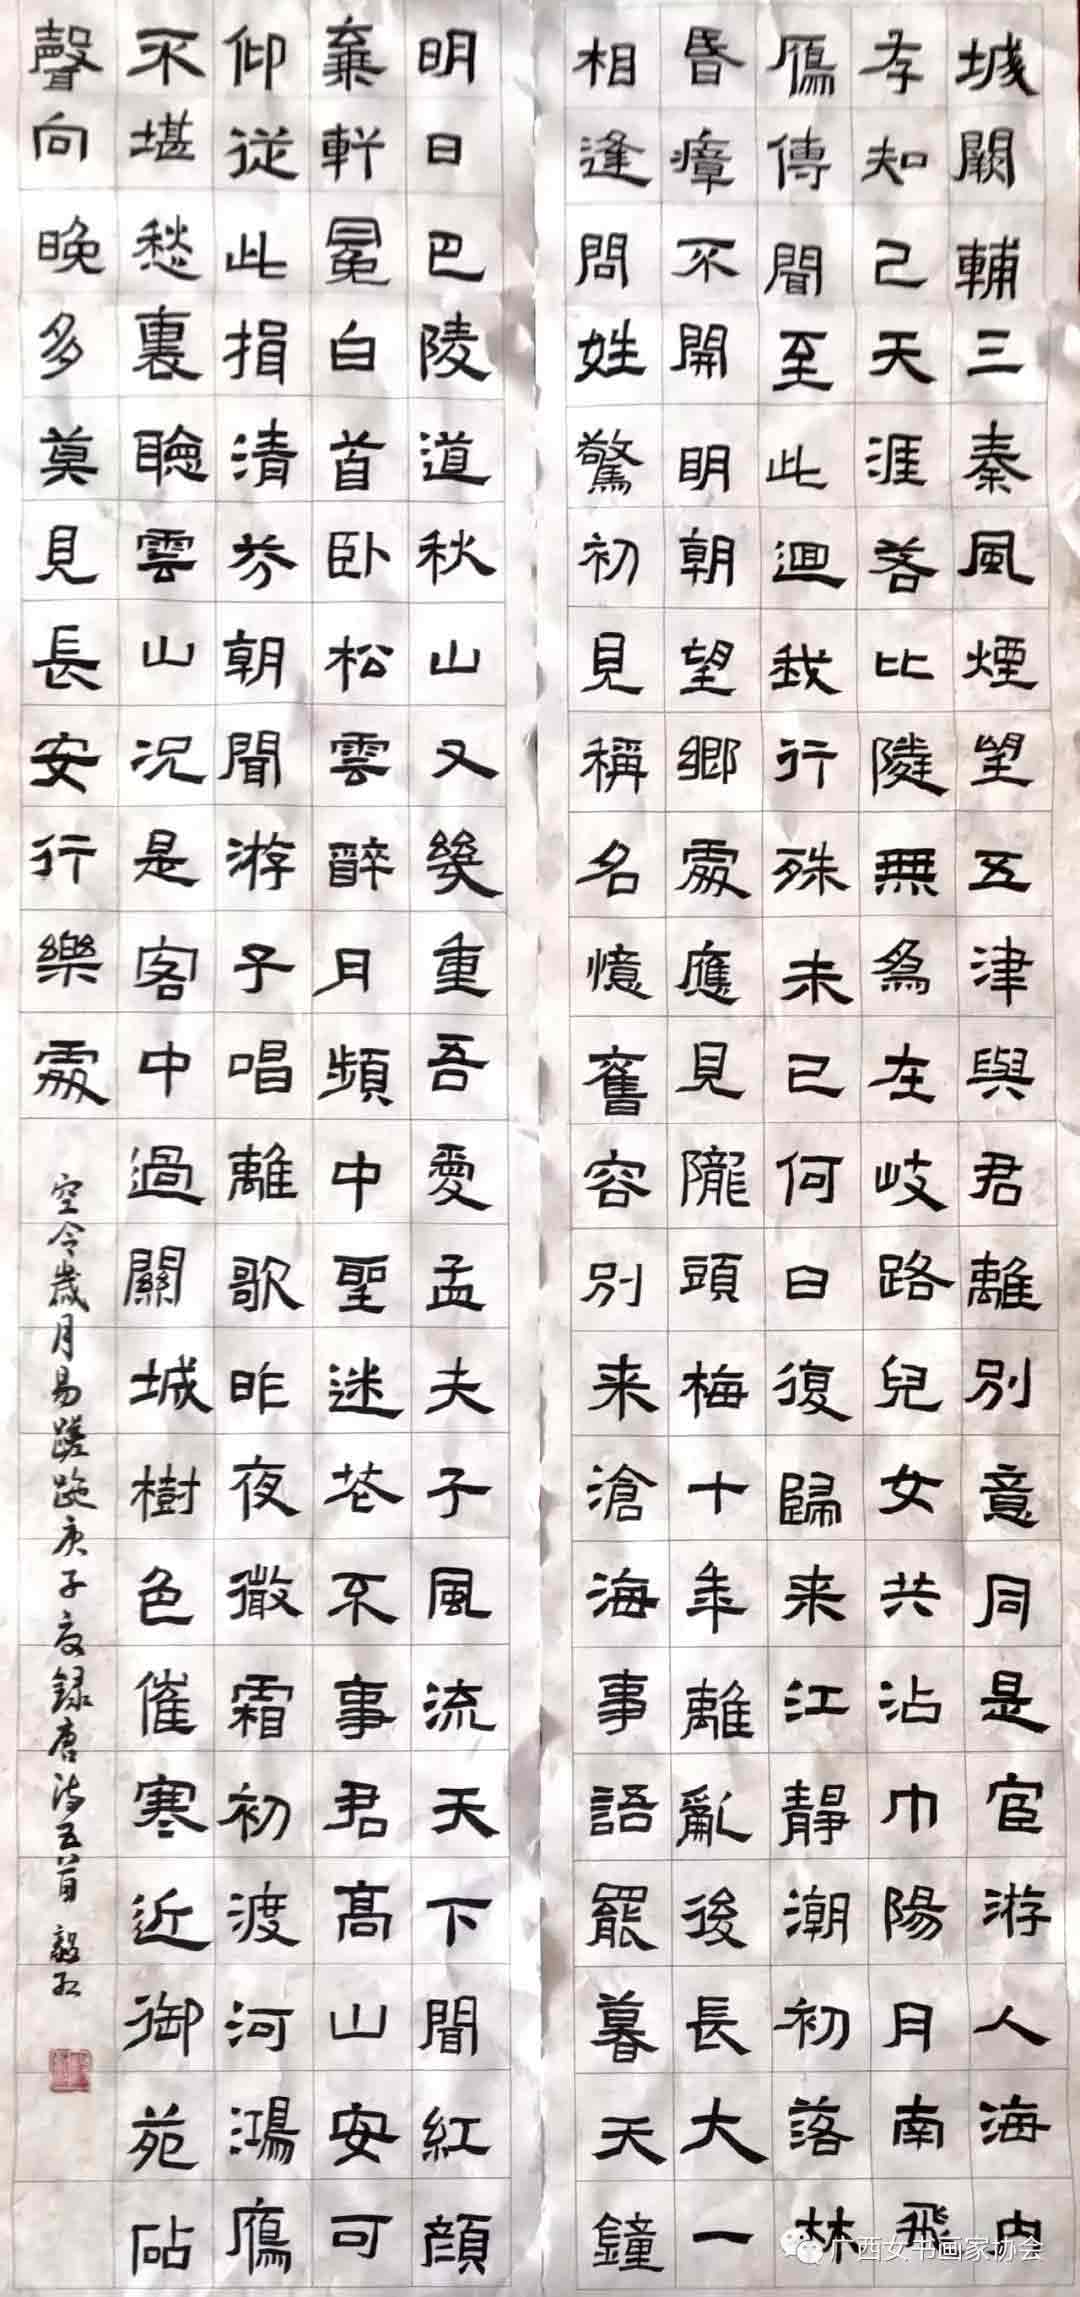 城闕輔三秦風煙望五津與君離別意同是宦游人海内
存知己天涯若比隣無為在岐路兒女共沾巾陽月南飛
鴈傳聞至此迴我行殊未已何日復歸来江静潮初落林
昏瘴不開明朝望鄉處應見隴頭梅十年離亂後長大一
相逢問姓驚初見稱名憶舊容別来滄海事語罷暮天鐘
明日巴陵道秋山又幾重吾愛孟夫子風流天下聞紅顏
棄軒冕白首卧松雲醉月頻中聖迷花不事君高山安可
仰從此揖清芬朝聞游子唱離歌昨夜微霜初渡河鴻鴈
不堪愁裏聽雲山況是客中過關城樹色催寒近御苑砧
聲向晚多莫見長安行樂處
空令歲月易蹉跎庚子夏録唐诗五首 毅
广西女书画家协会